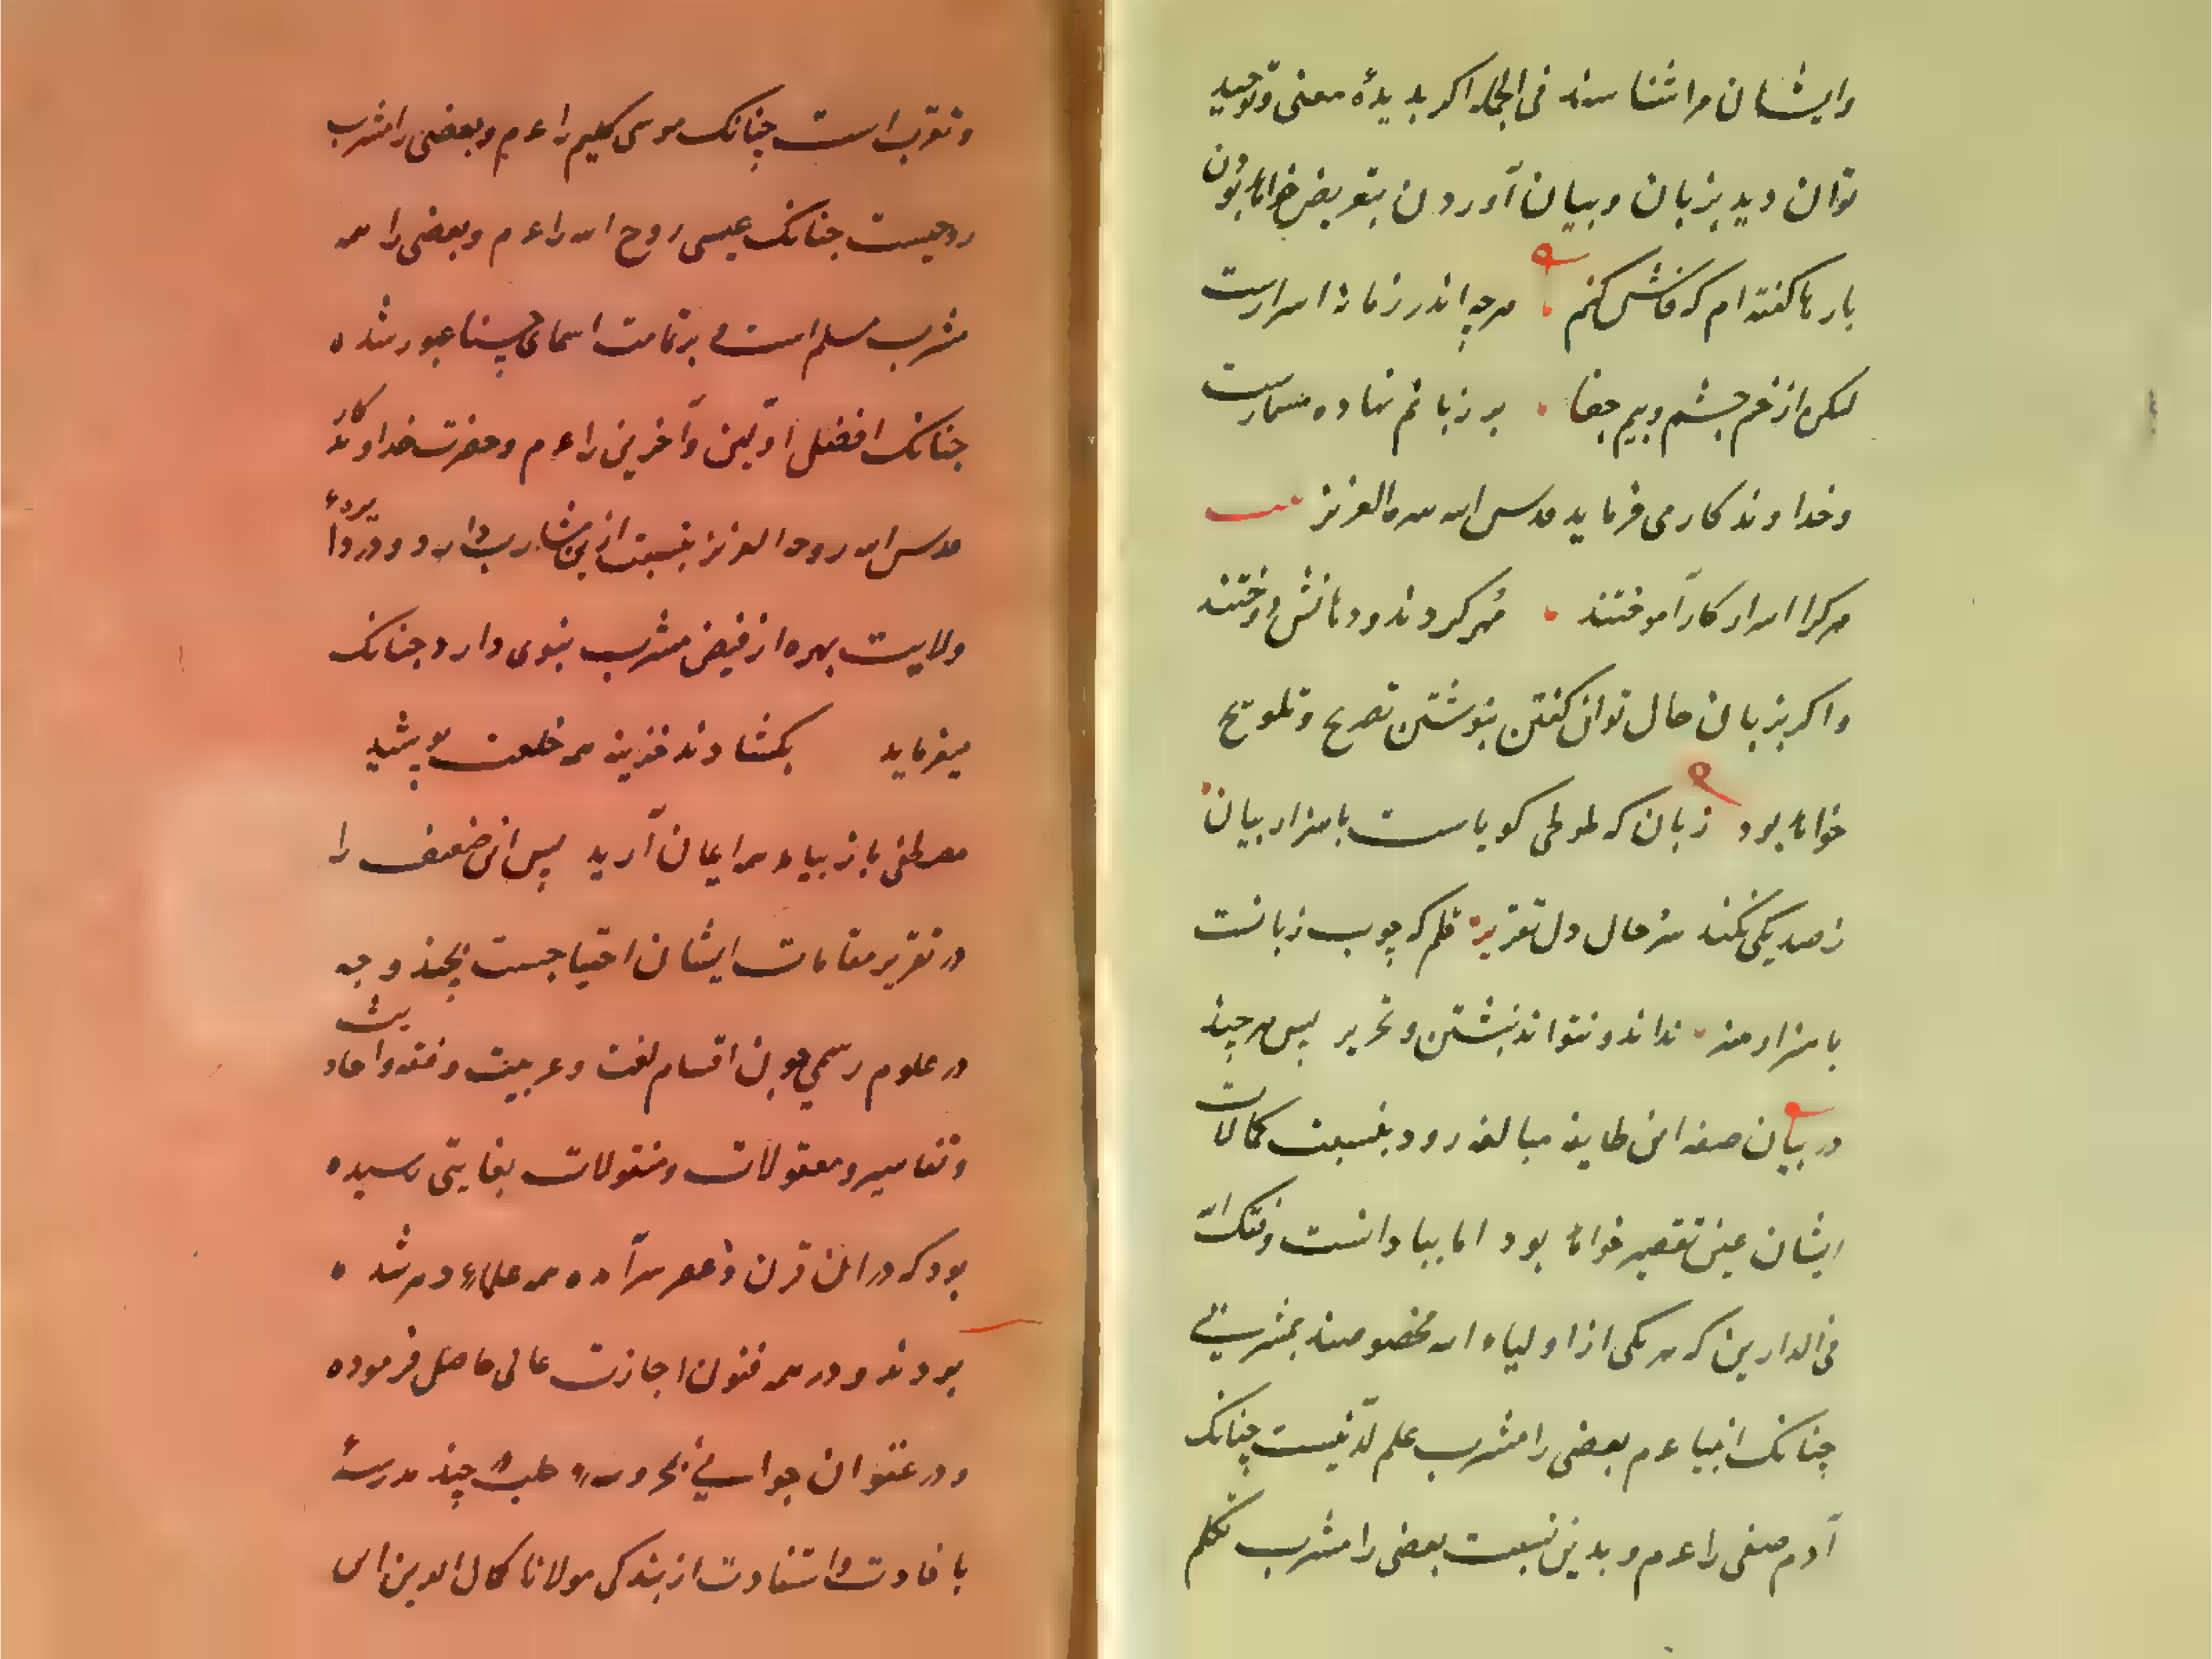 وایشان مرا شناسند فی الجمله اکر بدیدهٔ معنی وتوحید
توان دید بزبان وبیان آوردن بتعریض خواهد بودن
بارها کفته ام که فاش کنم هرچه اندر زمانه اسرارست
لیکن از زخم چشم وبیم جفا بر زبانم نهاده مسمارست
وخداوندکار می فرماید قدس الله سره العزیز بیت
هرکرا اسرار کار آموختند مُهر کردند ودهانش دوختند
واکر بزبان حال توان کفتن بنوشتن تصریح وتلویح
خواهد بود زبان که طوطی کویاست با هزار بیان
ز صد یکی نکند سرّ حال دل تقریر قلم که چوب زبانست
با هزار هنر نداند ونتواند نبشتن وتحریر پس هرچند
در بیان صفه این طایفه مبالغه رود بنسبت کمالات
ایشان عین تقصیر خواهد بود اما بباید دانست وفقک الله
فی الدارین که هر یکی از اولیاء الله مخصوصند بمشربی
چنانک انبیا ء م بعضی را مشرب علم لدنیست چنانک
آدم صفی را ء م و بدین نسبت بعضی را مشرب تکلم
وتقرب است چنانک موسی کلیم را ء م وبعضی را مشرب
روحیست چنانک عیسی روح الله را ء م وبعضی را همه
مشرب مسلم است وبر تمامت اسمای حسنا عبور شده
چنانک افضل اوّلین وآخرین را ء م وحضرت خداوندکار
قدس الله روحه العزیز بنسبت ازین مشارب دارد و
ولایت بهره از فیض مشرب نبوی دارد چنانک
میفرماید بکشادند خزینه همه خلعت پوشید
مصطفی باز بیامد همه ایمان آرید پس این ضعیف را
در تقریر مقامات ایشان احتیاجست بچند وجه
در علوم رسمی چون اقسام لغت وعربیت وفقه واحادیث
وتفاسیر ومعقولات ومنقولات بغایتی رسیده
بود که در آن قرن وعصر سرآمده همه علماء دهر شده
بودند و در همه فنون اجازت عالی حاصل فرموده
ودر عنفوان جوانی بمحروسه حلب در چند مدرسهٔ
بافادت واستفادت از بندکی مولانا کمال الدین ابن